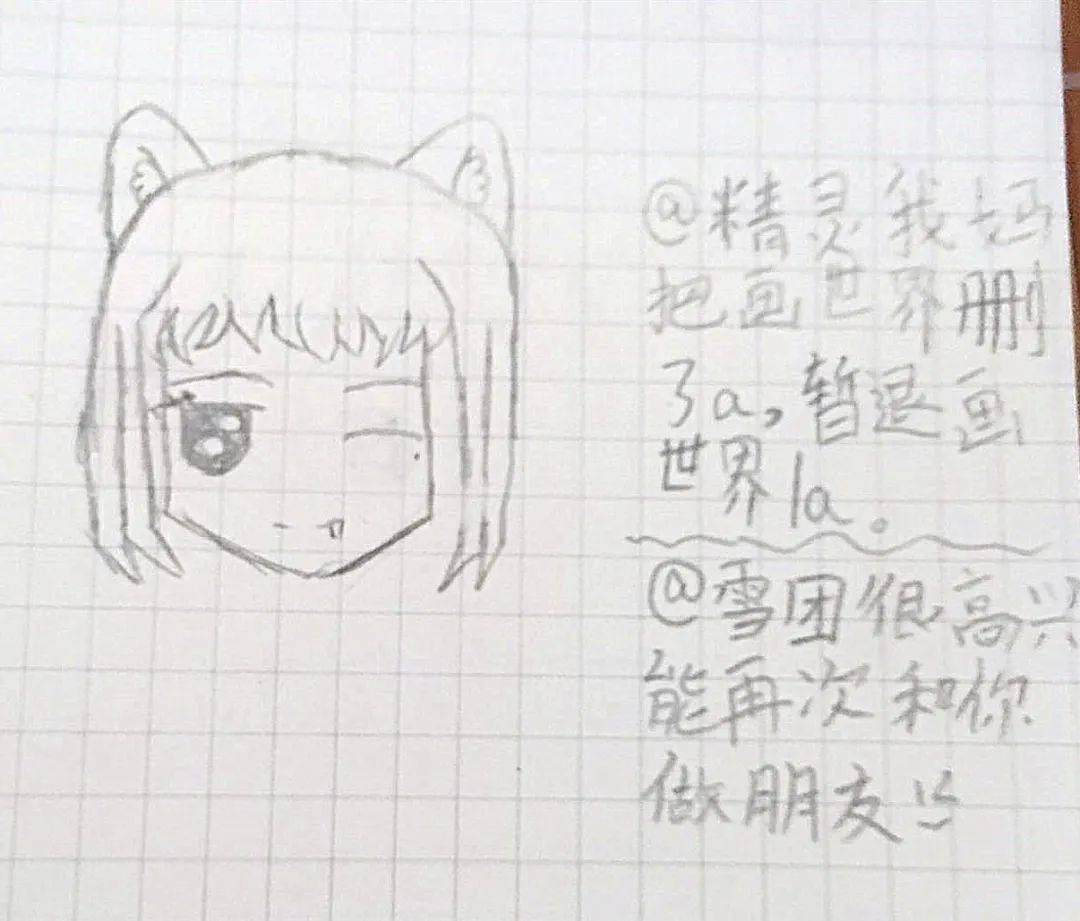 @精灵 我妈
把画世界删
了a,暂退画
世界la。
@雪团很高兴
能再次和你
做朋友